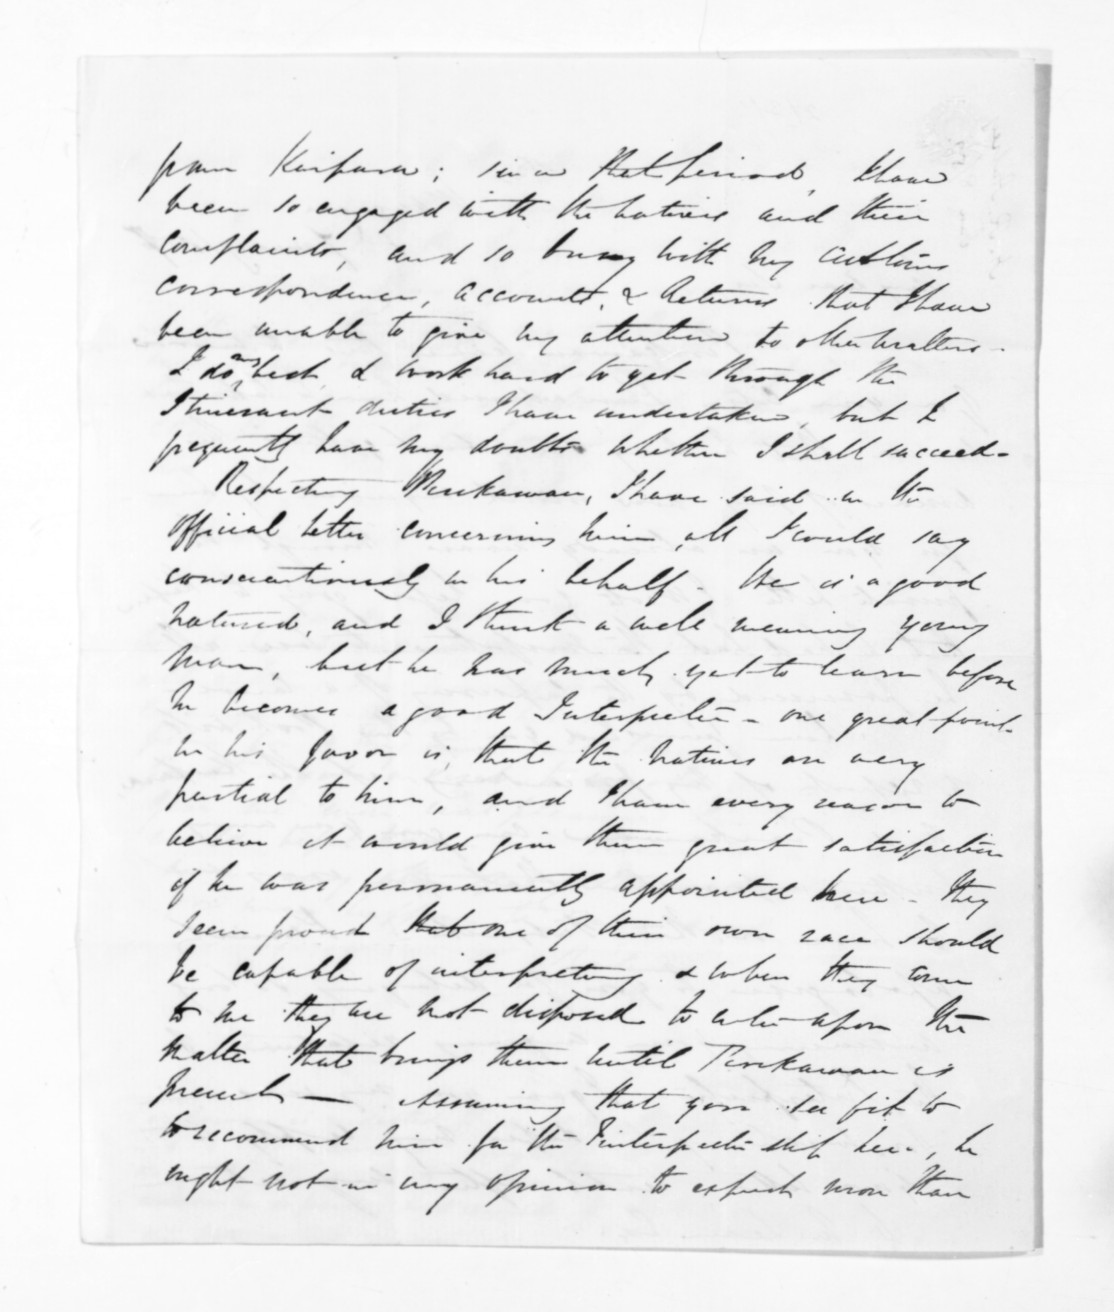 from Kaipara; since that period, I have
been so engaged with the natives and their
complaints, and so busy with my Customs
correspondence, accounts, & Returns that I have
been unable to give my attention to other matters -
I do my best, & work hard to get through the
Itinerant duties I have undertaken, but I
frequently have my doubts whether I shall succeed -
Respecting I have said in the
official letter concerning him, all I could say
conscientiously in his behalf. He is a good
natured, and I think a well meaning young
man, but he has much yet to learn before
he becomes a good Interpreter - one great point
in his favor is, that the natives are very
partial to him, and I have every reason to
believe it would give them great satisfaction
if he was permanently appointed here - They
seem proud that one of their own race should
be capable of interpreting & when they come
to me they are not disposed to enter upon the
matter that brings them until is
present — Assuming that you see fit to
to recommend him for the Interpretership here, he
ought not in my opinion to expect more than